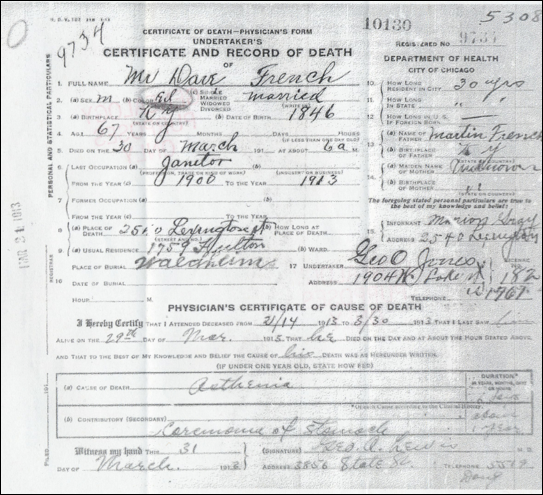 10130
5308
9734
CERTIFICATE OF DEATH—PHYSICIAN'S FORM
UNDERTAKER'S
CERTIFICATE AND RECORD OF DEATH
OF
REGISTERED NO 9734
DEPARTMENT OF HEALTH
CITY OF CHICAGO
PERSONAL AND STATISTICAL PARTICULARS
1. FULL NAME Mr Dave French
2. (A) SEX M (B) COLOR (C) SINGLE MARRIED WIDOWED DIVORCED married
3. BIRTHPLACE Ky (STATE OR COUNTRY) (B) DATE OF BIRTH 1846
4. AGE 67 YEARS MONTHS DAYS HOURS
(IF LESS THAN ONE DAY OLD)
5. DIED ON THE 30 DAY OF March 191 AT ABOUT 6 a M
6. LAST OCCUPATION Janitor
FROM THE YEAR 1900 TO THE YEAR 1913
7. FORMER OCCUPATION
FROM THE YEAR TO THE YEAR
8. (A) PLACE OF DEATH Lexington st (B) HOW LONG AT PLACE OF DEATH
(STREET AND NO.)
9. (A) USUAL RESIDENCE 1759 Fulton (B) WARD
PLACE OF BURIAL Waldheim
10 DATE OF BURIAL
HOUR M
10. HOW LONG RESIDENT IN CITY 20 yrs
11. HOW LONG IN STATE " "
12. HOW LONG IN U.S. IF FOREIGN BORN
13. (A) NAME OF FATHER Martin French
(B) BIRTHPLACE OF FATHER Ky
(STATE OR COUNTRY)
14. (A) MAIDEN NAME OF MOTHER Unknown
(B) BIRTHPLACE OF MOTHER "
(STATE OR COUNTRY)
The foregoing stated personal particulars are true to
the best of my knowledge and belief:
15. INFORMANT Marion Gray
ADDRESS 2540 Lexington
17 UNDERTAKER Geo O Jones LICENSE 182
ADDRESS 1904 W Lake st
TELEPHONE 1761
PHYSICIAN'S CERTIFICATE OF CAUSE OF DEATH
I Hereby Certify THAT I ATTENDED DECEASED FROM 2/14 1913 TO 3/30 1913 THAT I LAST SAW him
ALIVE ON THE 29th DAY OF Mar 1913 THAT he DIED ON THE DAY AND AT ABOUT THE HOUR STATED ABOVE,
AND THAT TO THE BEST OF MY KNOWLEDGE AND BELIEF THE CAUSE OF his DEATH WAS AS HEREUNDER WRITTEN.
(IF UNDER ONE YEAR OLD, STATE HOW FED)
DURATION
IN YEARS, MONTHS, DAYS OR HOURS
(a) CAUSE OF DEATH Asthenia
(b) CONTRIBUTORY (SECONDARY)
Carcinoma of Stomach 1 year
Witness my hand THIS 31 (SIGNATURE) Lewis
DAY OF March 1913 ADDRESS 3856 State St. TELEPHONE